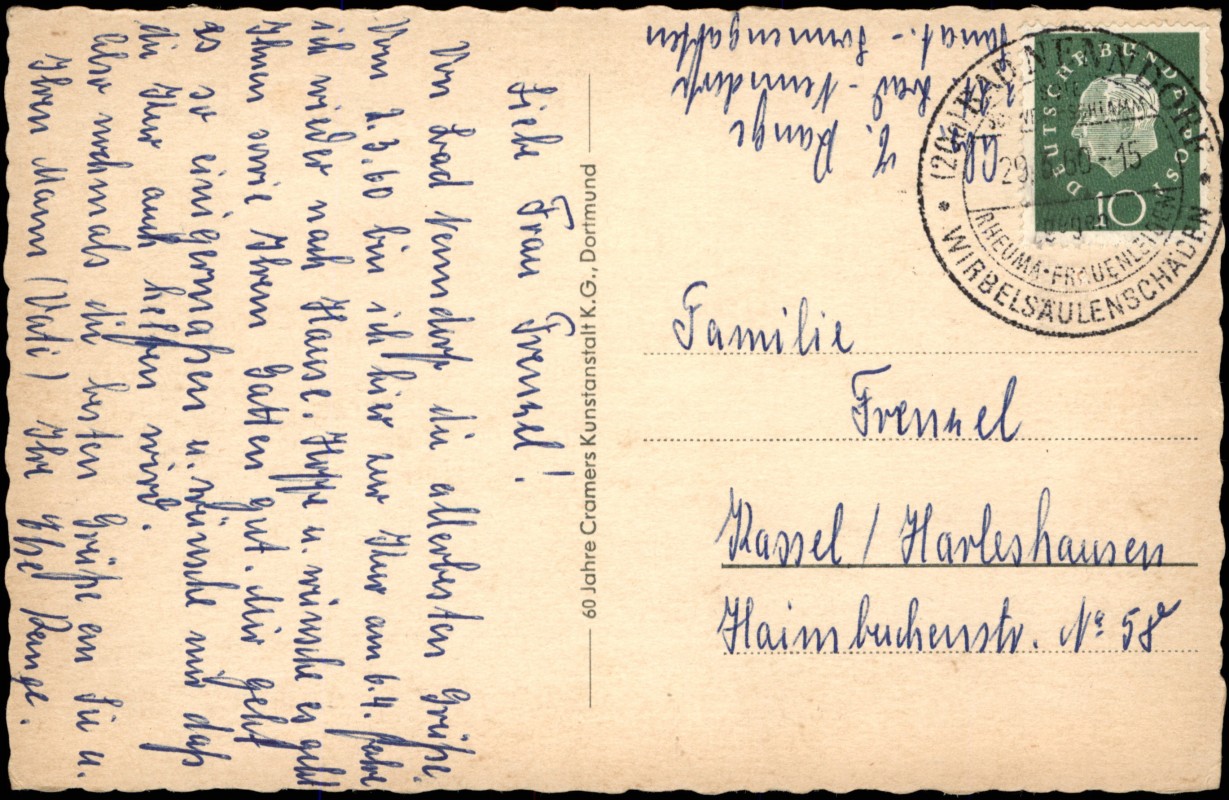 Liebe Frau Frenzel!
Von Bad Nenndorf die allerbesten Grüße.
Vom 2.3.60 bin ich hier zur Kur am 6.4. fahre
ich wieder nach Hause. Hoffe u. wünsche es geht
Ihnen sowie Ihrem Gatten gut. Mir geht
es so einigermaßen u. wünsche nur daß
die Kur auch helfen wird.
Also nochmals die besten Grüße an Sie u.
Ihren Mann (Vati) Ihre Range.
60 Jahre Cramers Kunstanstalt K.G., Dortmund
Range
Bad-Nenndorf
DEUTSCHE BUNDESPOST
10
(20) BAD NENNDORF
29.3.60-15
gegen
RHEUMA · FRAUENLEIDEN
WIRBELSÄULENSCHÄDEN
Familie
Frenzel
Kassel / Harleshausen
Haimbuchenstr. No 58